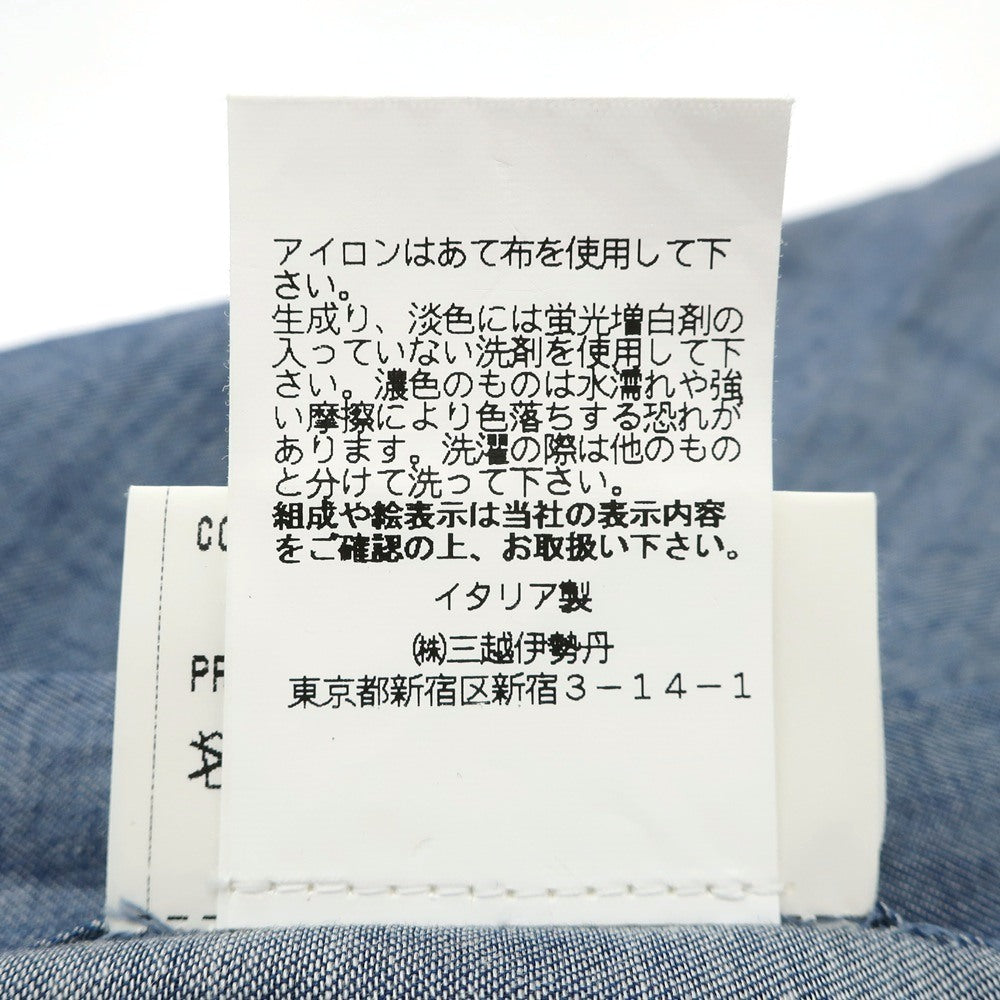 アイロンはあて布を使用して下
さい。
生成り、淡色には蛍光増白剤の
入っていない洗剤を使用して下
さい。濃色のものは水濡れや強
い摩擦により色落ちする恐れが
あります。洗濯の際は他のもの
と分けて洗って下さい。
組成や絵表示は当社の表示内容
をご確認の上、お取扱い下さい。
イタリア製
㈱三越伊勢丹
東京都新宿区新宿3-14-1